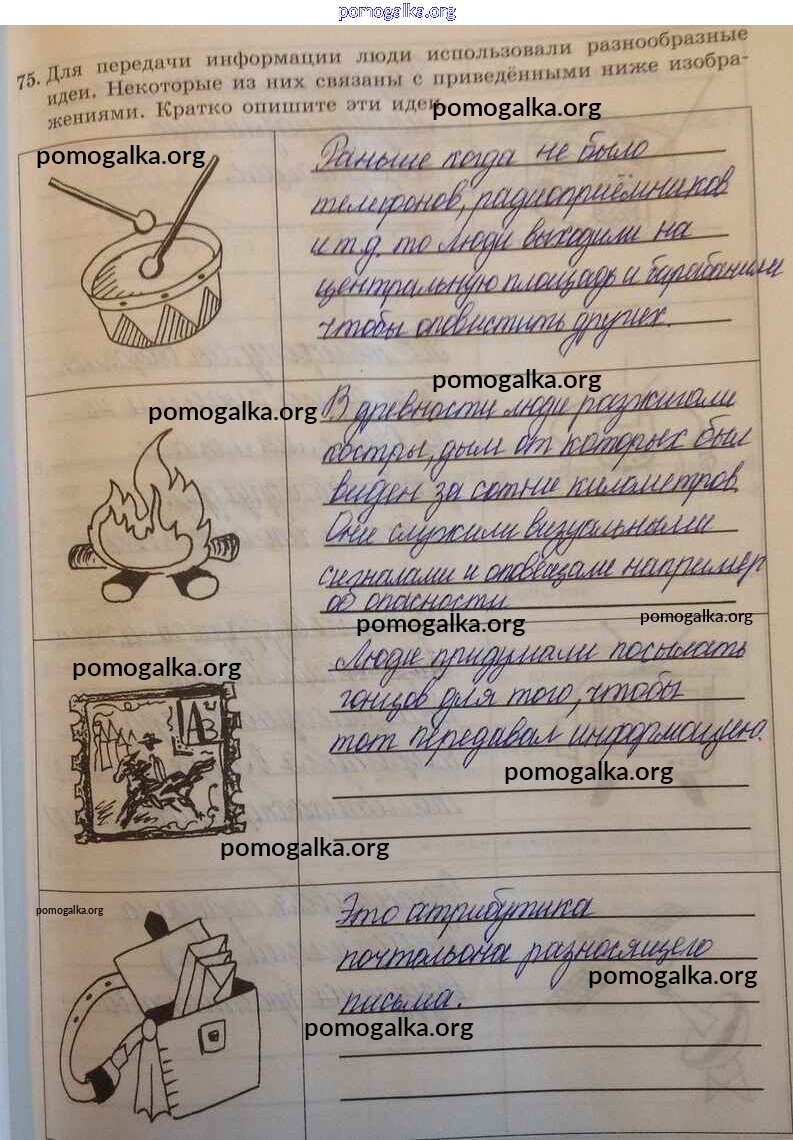 pomogalka.org
75. Для передачи информации люди использовали разнообразные
идеи. Некоторые из них связаны с приведёнными ниже изобра-
жениями. Кратко опишите эти идеи
pomogalka.org
pomogalka.org
Раньше когда не было
телефонов, радиоприёмников
и т.д. то люди выходили на
центральную площадь и барабанили
чтобы оповистить других.
pomogalka.org
pomogalka.org
В древности люди разжигали
костры, дым от которых был
виден за сотни километров
Они служили визуальными
сигналами и оповещали например
об опасности
pomogalka.org
pomogalka.org
pomogalka.org
Люди придумали посылать
гонцов для того, чтобы
тот передавал информацию.
АЗ
pomogalka.org
pomogalka.org
pomogalka.org
Это атрибутика
почтольона разносящего
письма.
pomogalka.org
pomogalka.org